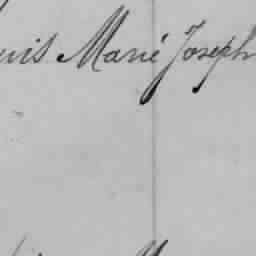 uis Marie Joseph